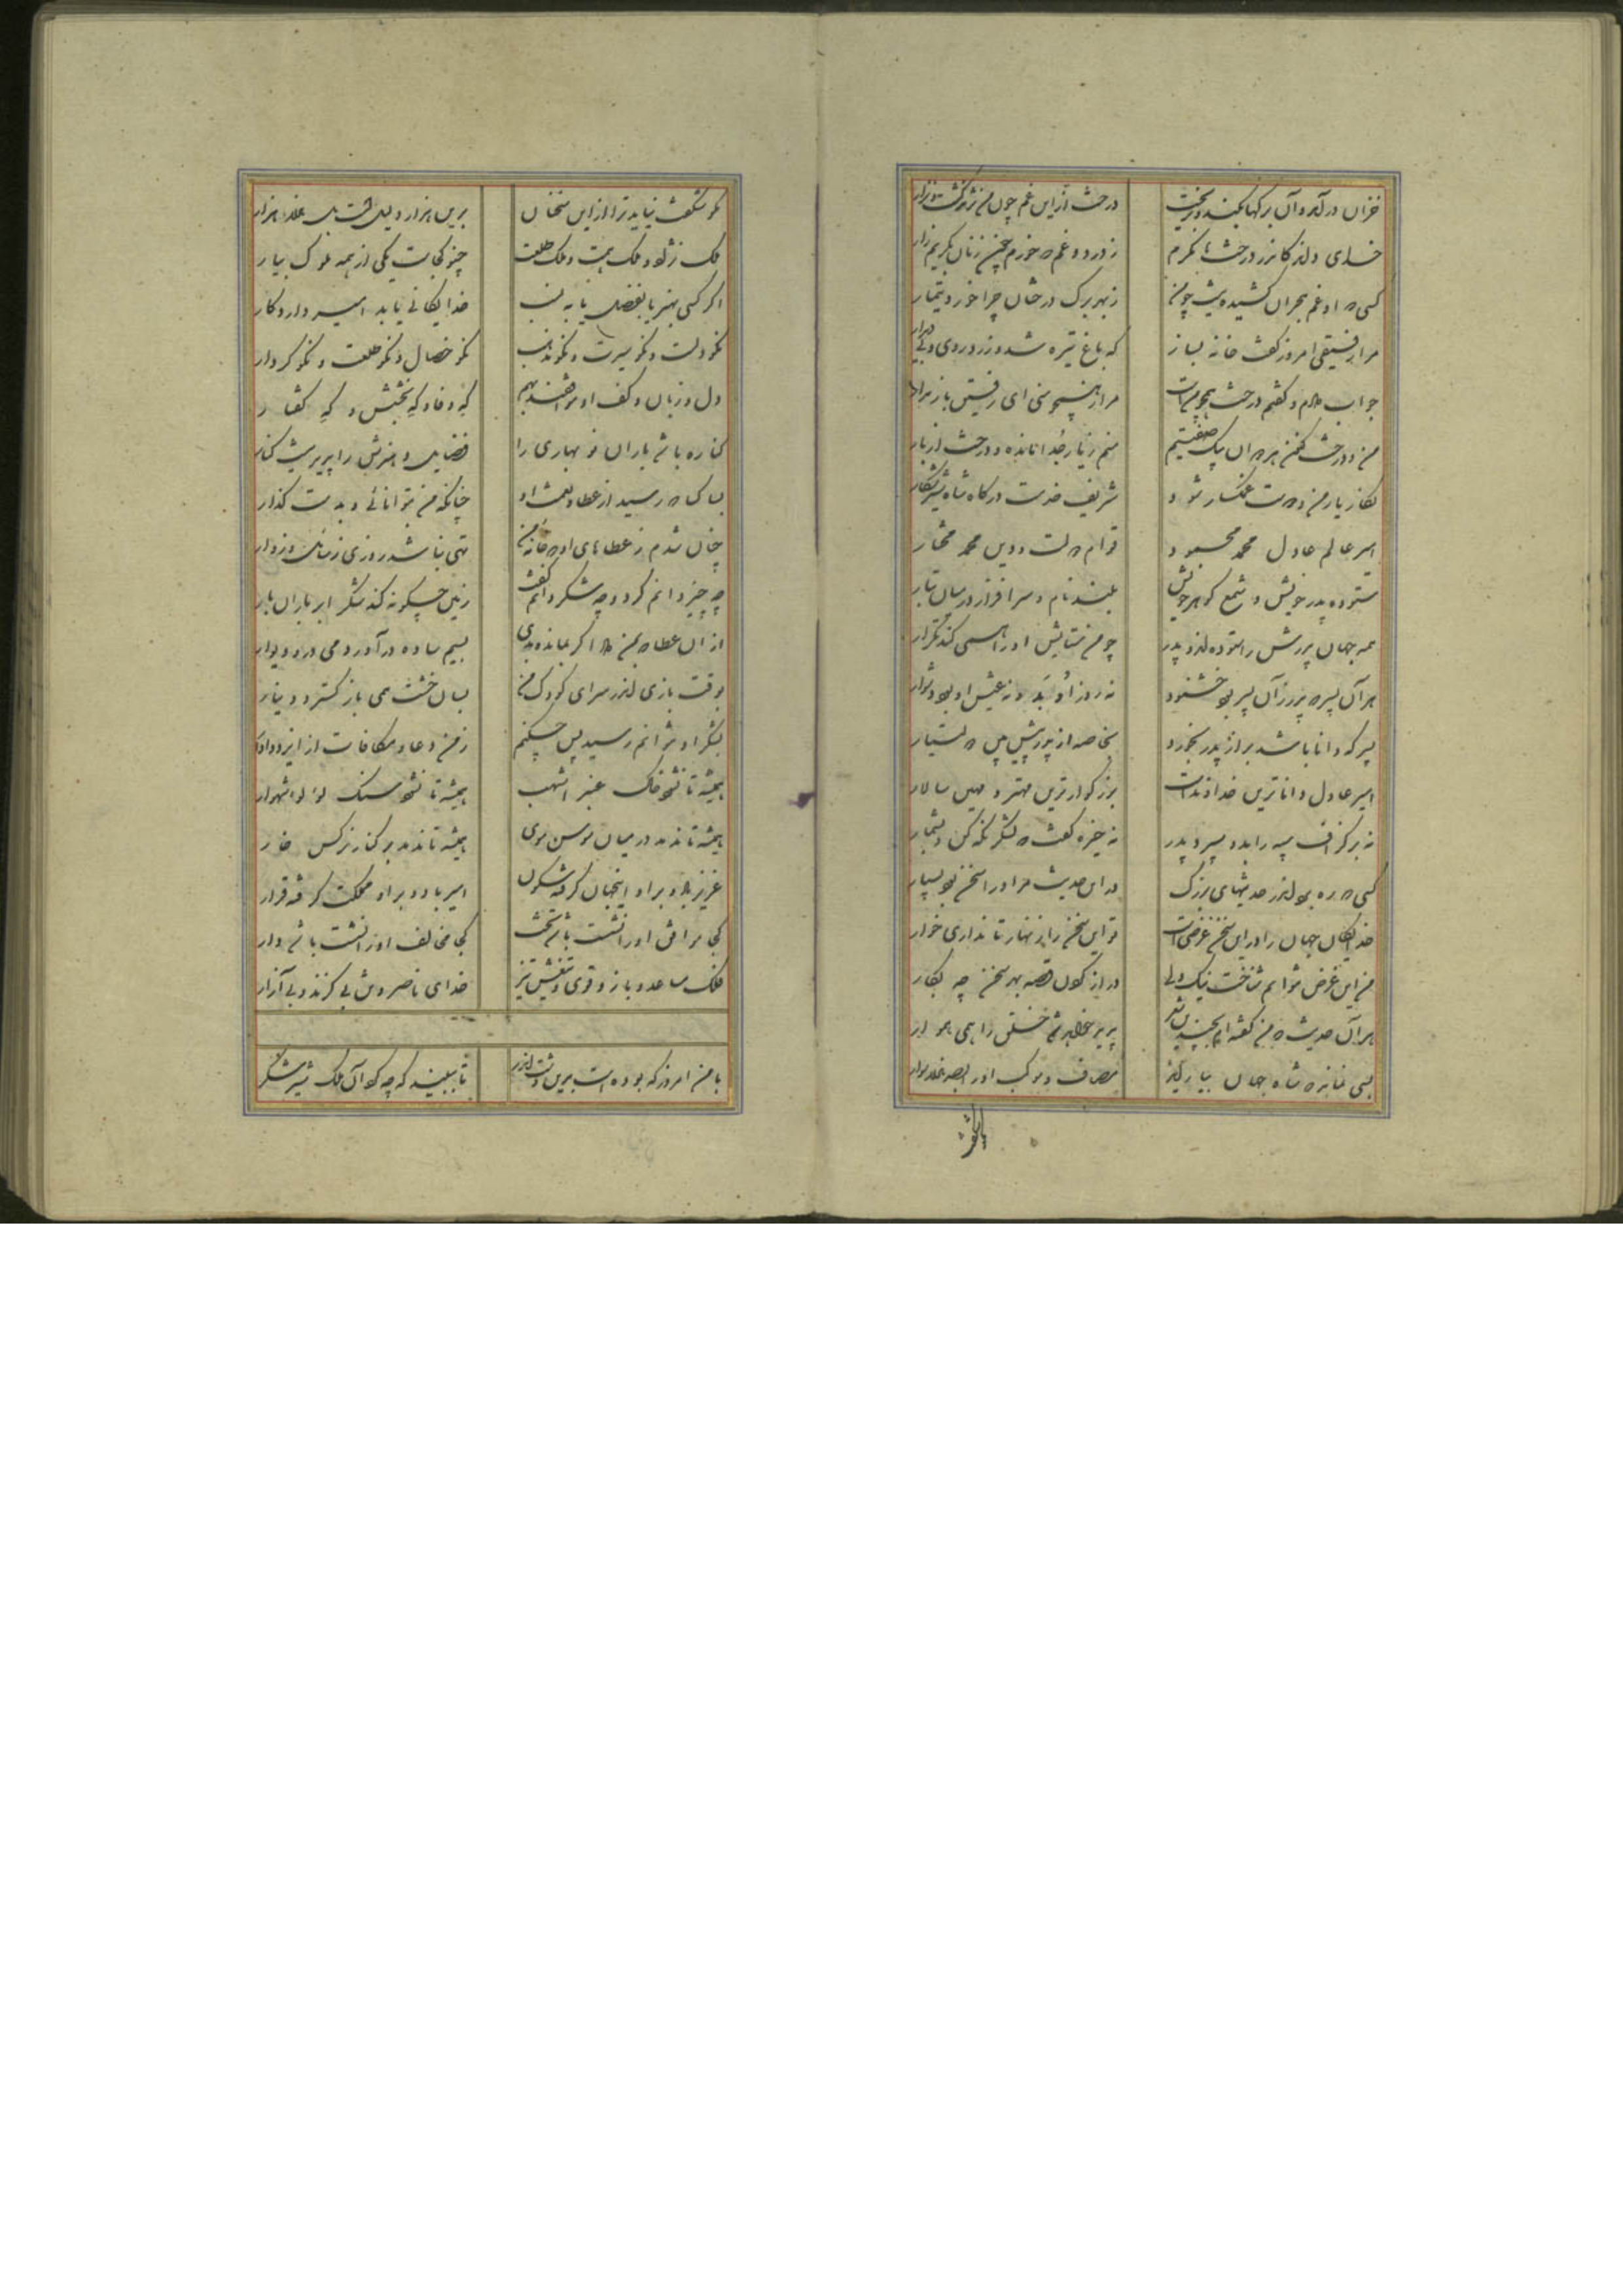 خزان درآمد و آن برگها بکند و بریخت درخت ازین غم چون من نژند گشت و نزار
خدای داند کاندر درخت ها نگرم ز درد و غم که خورم چون زنان بگریم زار
کسی که او غم هجران کشیده نیست چو من ز بهر برگ درختان چرا خورد تیمار
مرا رفیقی امروز گفت خانه بساز که باغ تیره شد و زرد روی و بی دیدار
جواب دادم و گفتم درخت همچو منست مرا ز همچو منی ای رفیق باز مدار
من و درخت کنون هر دوان بیک صفتیم منم ز یار جدا مانده و درخت از بار
نگار یار من و دوست غمگسار شود شریف خدمت درگاه شاه شیر شکار
امیر عالم عادل محمد محمود قوام دولت و دین محمد مختار
ستوده پدر خویش و شمع گوهر خویش بلند نام و سرافراز در میان تبار
همه جهان پدرش را ستوده اند و پدر چو من ستایش او را همی کند تکرار
هر آن پسر که پدر زان پسر بود خشنود نه روز او بد و نه عیش او بود دشوار
پسر که دانا باشد بر از پدر بخورد بخاصه از پدر پیش بین دولتیار
امیر عادل داناترین خداوند است بزرگوارترین مهتر و مهین سالار
نه بر گزاف سپه را بدو سپرد پدر نه خیره گفت که لشکر نگه کن و بشمار
کسی که ره بود اندر حدیثهای بزرگ در این حدیث مر او را سخن بود بسیار
خدایگان جهان را درین سخن غرضیست تو این سخن را زنهار تا نداری خوار
من این غرض بتوانم شناخت نیک ولی دراز کردن قصه بهر سخن چه بکار
هر آن حدیث که من گفته ام بچندین شعر پدید خواهد شد خلق را همی هموار
بسی نماند که شاه جهان بیاراید مصاف و موکب او را بصد هزار سوار
باشگفت
مگر شگفت نیاید ترا ازین سخنان برین هزار دلیلست بلکه هزار هزار
ملک نژاد و ملک همت و ملک طلعت چنو کجاست یکی از همه ملوک بیار
اگر کسی بهنر یا بفضل یا به نسب خدایگانی یابد امیر دارد کار
نکو دلست و نکو سیرت و نکو مذهب نکو خصال و نکو طلعت و نکو کردار
دل و زبان و کف او موافقند بهم گه وفا و گه بخشش و گه گفتار
کناره باشد باران نو بهاری را فضایل و هنرش را پدید نیست کنار
بسا کسا که رسید از عطا و نعمت او چنانکه من بتوانائی و بدست گذار
چنان شدم ز عطاهای او که خانه من تهی نباشد روزی ز سائل و زوار
چه چیز دانم کرد و چه شکر دانم گفت زمین چگونه کند شکر ابر باران بار
از آن عطا که بمن داد اگر بمانده بدی بسیم ساده در آوردمی در و دیوار
بوقت بازی اندر سرای کودک من بسان خشت همی باز گسترد دینار
بشکر او نتوانم رسید پس چکنم ز من دعا و مکافات از ایزد دادار
همیشه تا نشود خاک عنبر اشهب همیشه تا نشود سنگ لؤلؤ شهوار
همیشه تا ندمد در میان سوسن موی همیشه تا ندمد بر کنار نرگس خار
عزیز باد و بر او اینجهان گرفته سکون امیر باد و بر او مملکت گرفته قرار
کجا موافق او را نشست باشد تخت کجا مخالف او را نشست باشد دار
فلک مساعد و بازو قوی و تیغش تیز خدای ناصر و تن بی گزند و بی آزار
با من امروز که بوده است برین دشت اندر تا ببیند که چه کرد آن ملک شیر شکر